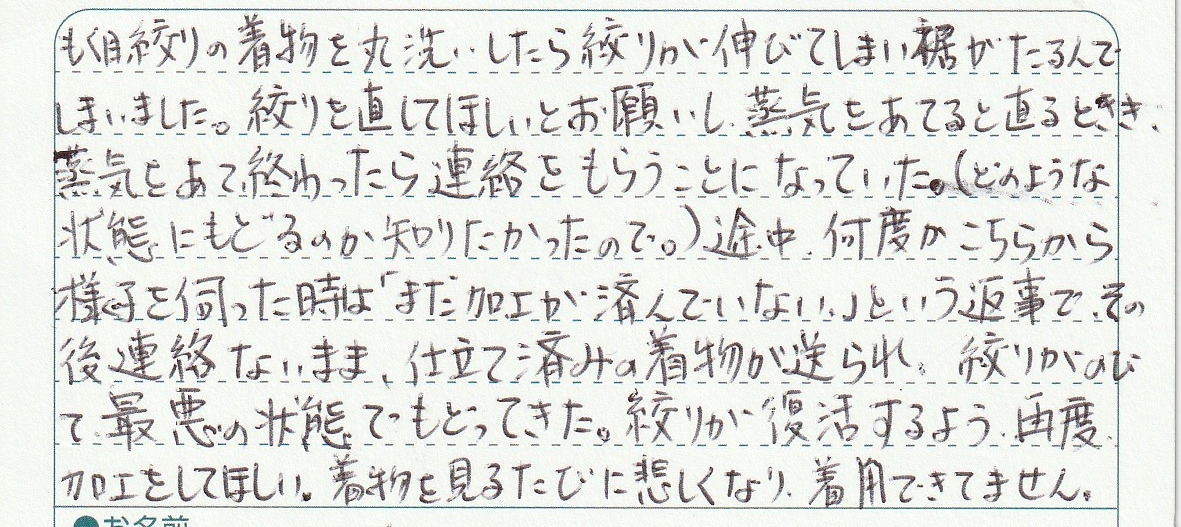 もく目絞りの着物を丸洗いしたら絞りが伸びてしまい裾がたるんで
しまいました。絞りを直してほしいとお願いし、蒸気をあてると直るときき、
蒸気をあて終わったら連絡をもらうことになっていた。(どのような
状態にもどるのか知りたかったので。)途中、何度かこちらから
様子を伺った時は「まだ加工が済んでいない。」という返事で、その
後連絡ないまま、仕立て済みの着物が送られ、絞りがのび
て、最悪の状態でもどってきた。絞りが復活するよう、再度、
加工をしてほしい。着物を見るたびに悲しくなり、着用できてません。
●お名前